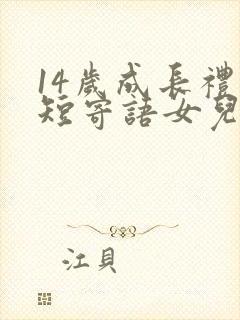 14歲成長禮
短寄語女兒
江貝